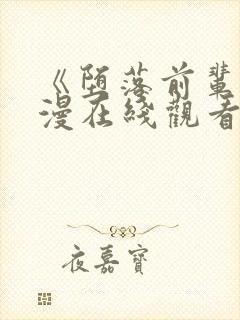 《堕落前輩
漫在綫觀看
夜嘉寶